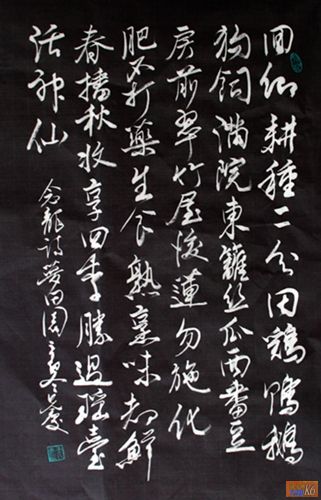 回鄉耕種二分田鷄鴨鵝
狗飼滿院東籬丝瓜西番豆
房前翠竹屋後蓮勿施化
肥不打藥生食熟烹味都鮮
春播秋收享四季勝過瑶臺
活神仙
念龍詩夢田園